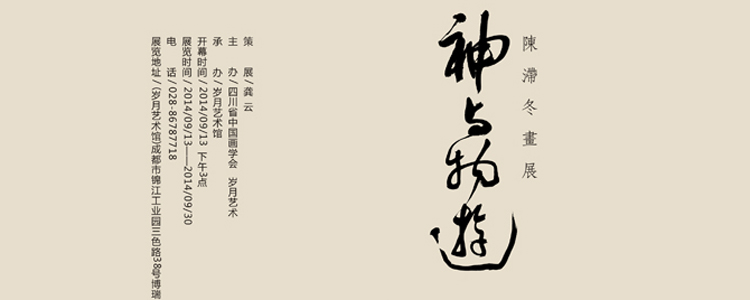 陳滯冬畫展
神与物遊
策 展/龚云
主 办/四川省中国画学会 岁月艺术
承 办/岁月艺术馆
开幕时间/2014/09/13 下午3点
展览时间/2014/09/13——2014/09/30
电 话/028-86787718
展览地址/(岁月艺术馆)成都市锦江工业园三色路38号博瑞